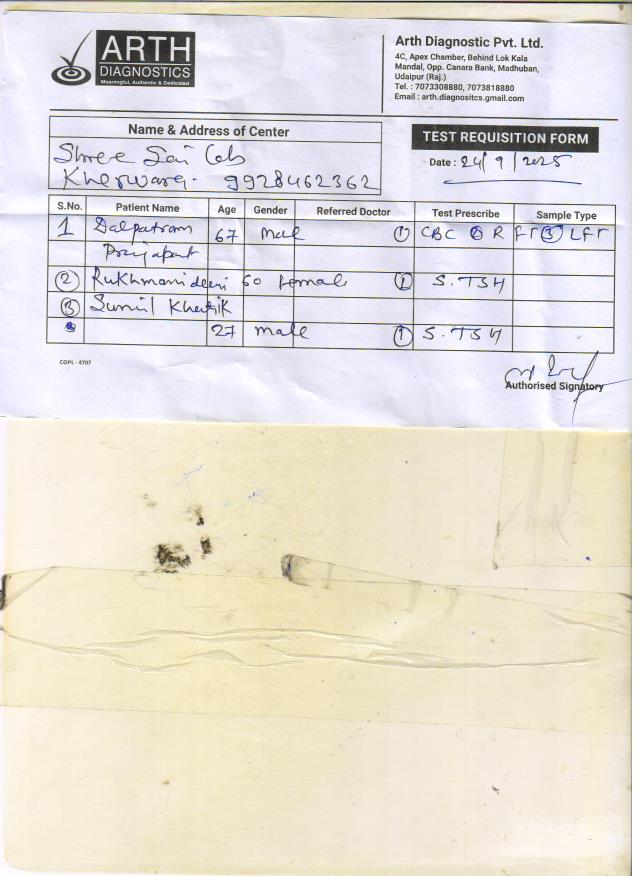 ARTH
DIAGNOSTICS
Meaningful, Authentic & Dedicated
Arth Diagnostic Pvt. Ltd.
4C, Apex Chamber, Behind Lok Kala
Mandal, Opp. Canara Bank, Madhuban,
Udaipur (Raj.)
Tel. : 7073308880, 7073818880
Email : arth.diagnositcs.gmail.com
Name & Address of Center
Shree Sai Lab
Kherwara - 9928462362
TEST REQUISITION FORM
Date : 24/9/2025
S.No. Patient Name Age Gender Referred Doctor Test Prescribe Sample Type
1 Dalpatram 67 Male ① CBC ② RFT ③ LFT
Prajapat
② Rukhmanideevi 60 female ① S.TSH
③ Sunil Khatik
27 male ① S.TSH
COPL - 4707
Authorised Signatory